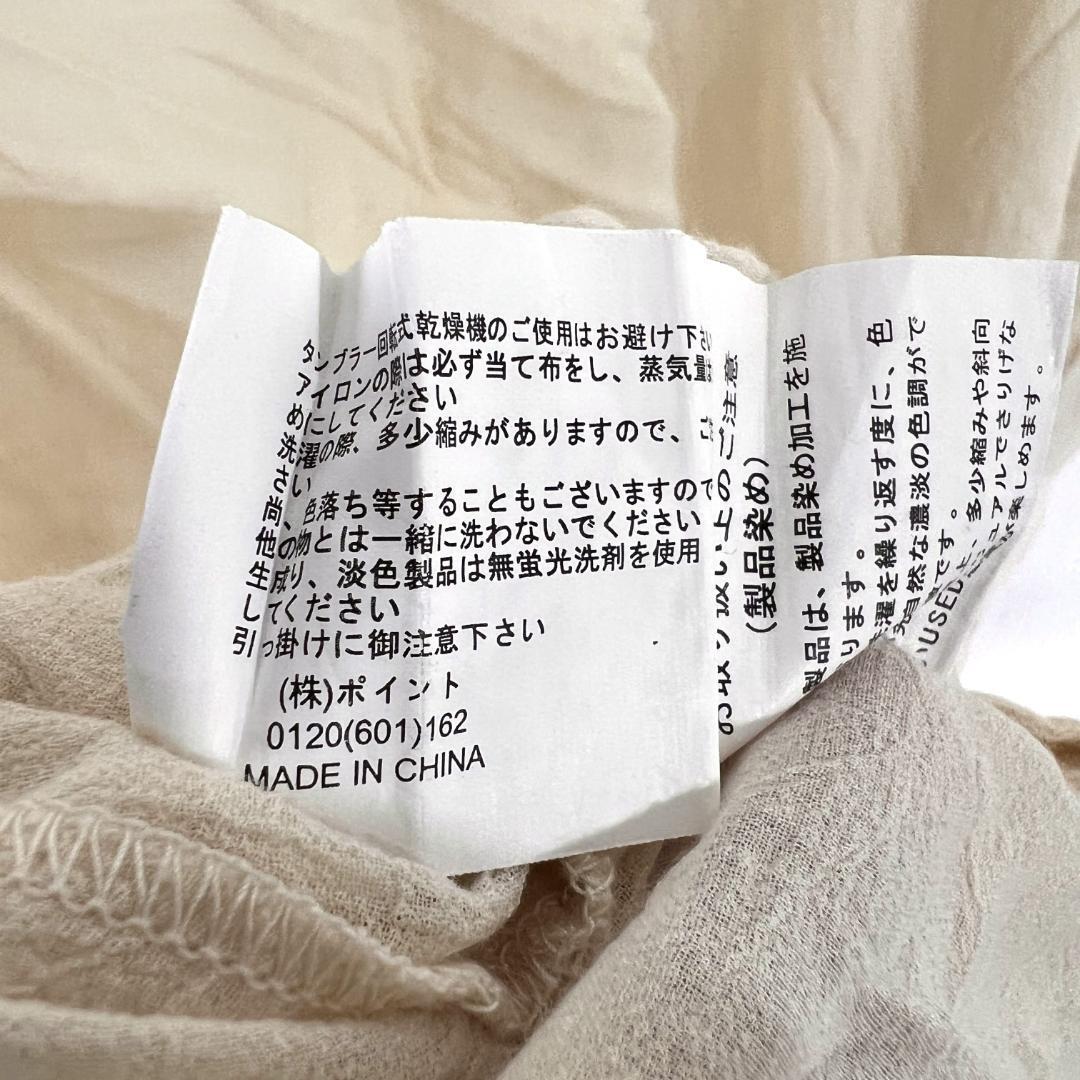 タンブラー回転式乾燥機のご使用はお避け下さい
アイロンの際は必ず当て布をし、蒸気量は
めにしてください
洗濯の際、多少縮みがありますので、ご
さい
尚、色落ち等することもございますので
他の物とは一緒に洗わないでください
生成り、淡色製品は無蛍光洗剤を使用
してください
引っ掛けに御注意下さい
(株)ポイント
0120(601)162
MADE IN CHINA
お取り扱い上のご注意
(製品染め)
製品は、製品染め加工を施
ります。
洗濯を繰り返す度に、色
自然な濃淡の色調がで
です。
USED
多少縮みや斜向
アルでさりげな
楽しめます。